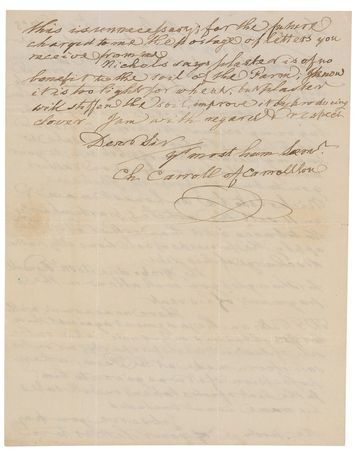 this is unnecessary; for the future
charge to me the Postage of letters you
receive from me
Nichols says plaster is of no
benefit to the soil of the Farm. I know
it is too light for wheat, but plaster
will stiffen the soil, improve it by producing
clover. I am with regard & respect
Dear Sir
yr most hum Servt.
Ch. Carroll of Carrollton